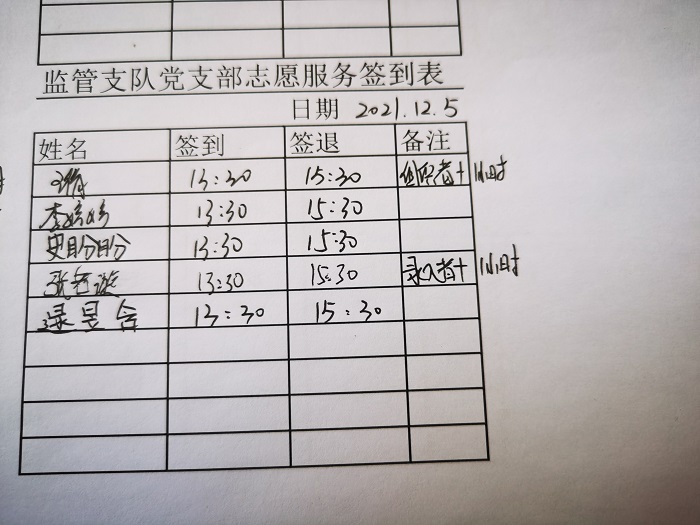 监管支队党支部志愿服务签到表
日期 2021.12.5
姓名 签到 签退 备注
13:30 15:30 组织者+1小时
李婷婷 13:30 15:30
史盼盼 13:30 15:30
张 13:30 15:30 录入者+1小时
逯昱含 13:30 15:30